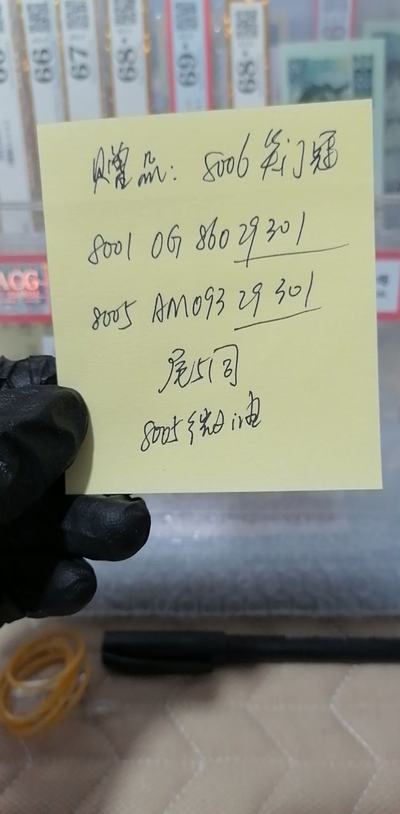 66
67
68
69
68
ACG
赠品: 8006 关门冠
8001 OG 86029301
8005 AM09329301
尾5同
8005微油